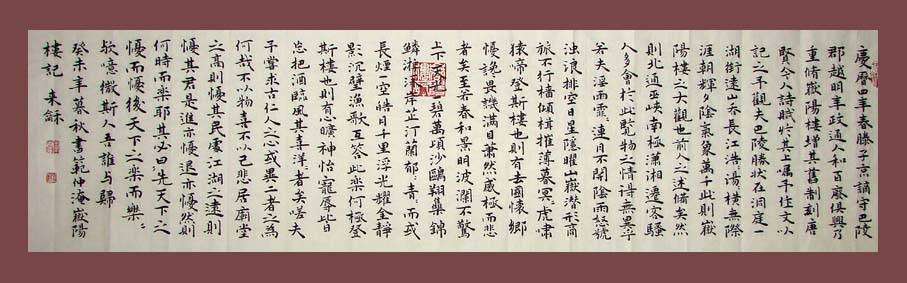 慶曆四年春滕子京謫守巴陵
郡越明年政通人和百廢俱興乃
重脩嶽陽樓增其舊制刻唐
賢今人詩賦於其上囑予作文以
記之予觀夫巴陵勝狀在洞庭一
湖銜遠山吞長江浩〻湯〻橫無際
涯朝輝夕陰氣象萬千此則嶽
陽樓之大觀也前人之述備矣然
則北通巫峽南極瀟湘遷客騷
人多會於此覽物之情得無異乎
若夫淫雨霏〻連月不開陰雨怒號
濁浪排空日星隱曜山嶽潛形商
旅不行檣傾楫摧薄暮冥〻虎嘯
猿啼登斯樓也則有去國懷鄉
憂讒畏譏滿目蕭然感極而悲
者矣至若春和景明波瀾不驚
上下天光一碧萬頃沙鷗翔集錦
鱗游泳岸芷汀蘭郁〻青〻而或
長煙一空皓月千里浮光耀金靜
影沉璧漁歌互答此樂何極登
斯樓也則有心曠神怡寵辱皆
忘把酒臨風其喜洋〻者矣嗟夫
予嘗求古仁人之心或異二者之為
何哉不以物喜不以己悲居廟堂
之高則憂其民處江湖之遠則
憂其君是進亦憂退亦憂然則
何時而樂耶其必曰先天下之
憂而憂後天下之樂而樂〻
歟噫微斯人吾誰與歸
癸未年暮秋書範仲淹嶽陽
樓記 來穌